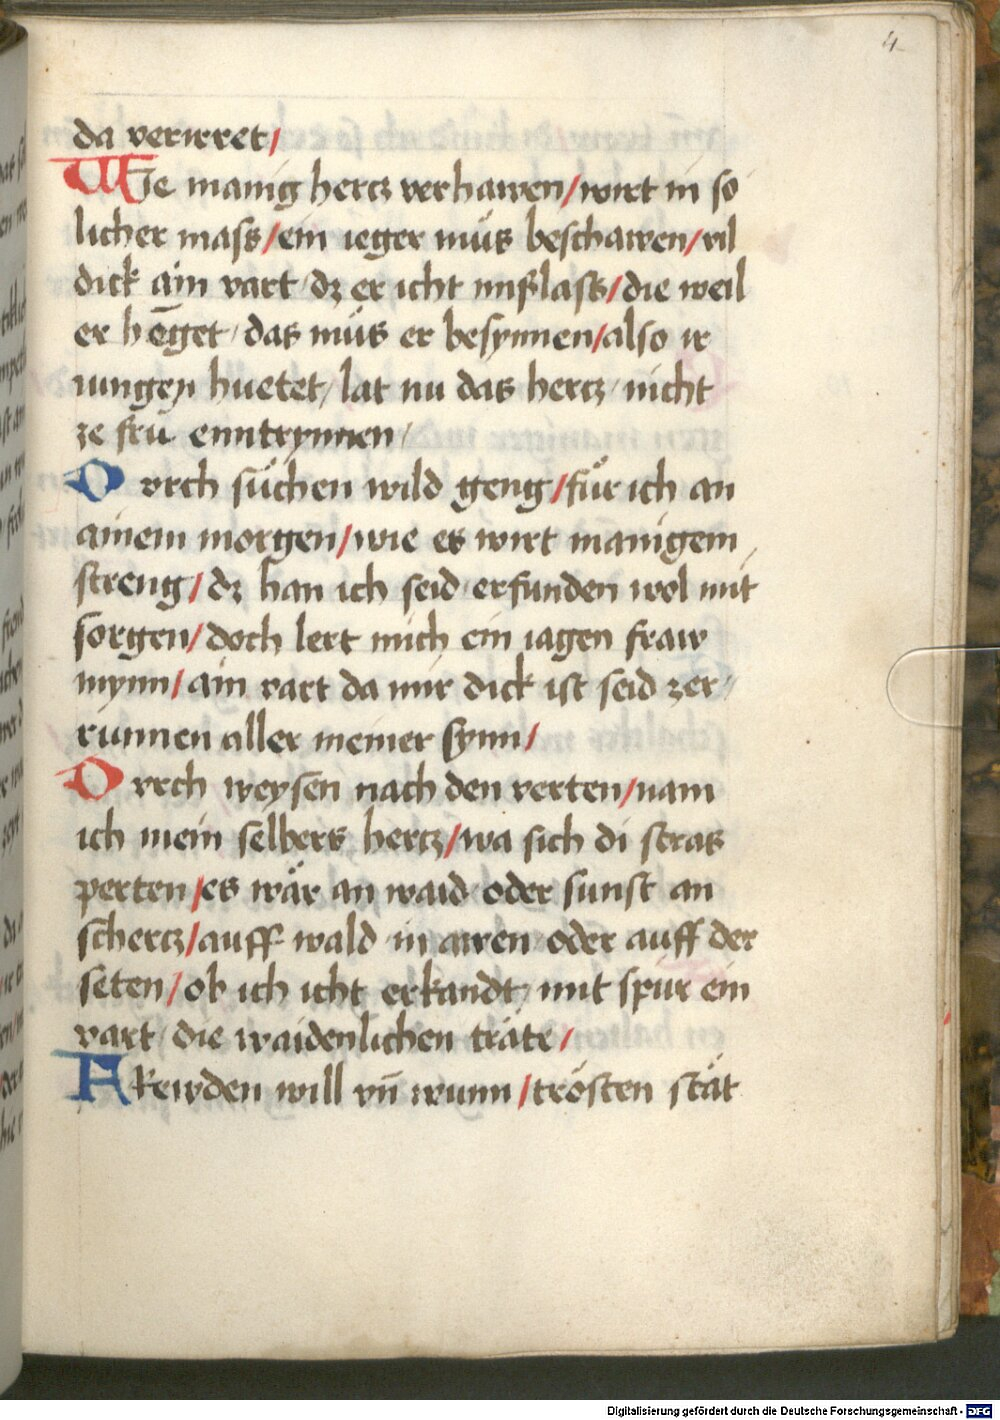 4
da verirret/
Wie manig hercz verhawen/wirt in so
licher mass/ein ieger müs beschawen/vil
dick ain vart dz er icht mißlass/die weil
er hēget/das müs er besynnen/also ir
iungen huetet/lat nu das hercz/nicht
ze frü enntrynnen/
Durch süchen wild geng/für ich an
ainem morgen/wie es wirt manigem
streng/dz han ich seid erfunden wol mit
sorgen/doch lert mich ein iagen fraw
mynn/ain vart da mir dick ist seid zer/
runnen aller meiner synn/
Durch weysen nach den verten/nam
ich mein selbers hercz/wa sich di stras
perten/es wär an waid oder sunst an
schercz/auff wald in awen oder auff der
seten/ob ich icht erkandt/mit spür ein
vart die waidenlichen träte/
Frewden will vn̄ wunn/trösten stät
Digitalisierung gefördert durch die Deutsche Forschungsgemeinschaft - DFG